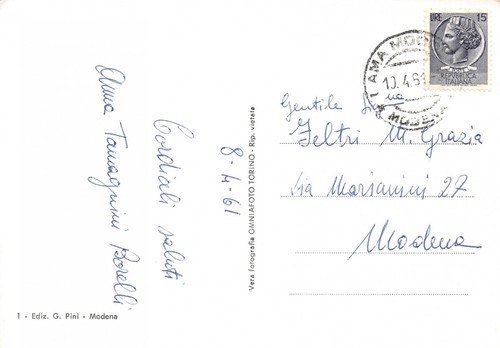 8-4-61
Cordiali saluti
Anna Tamagnini Borelli
1 - Ediz. G. Pini - Modena
Vera fotografia OMNIAFOTO TORINO - Rip. vietata
LIRE 15
LAMA MO
10.4.61
MODENA
Gentile
Feltri M. Grazia
Via Marianini 27
Modena